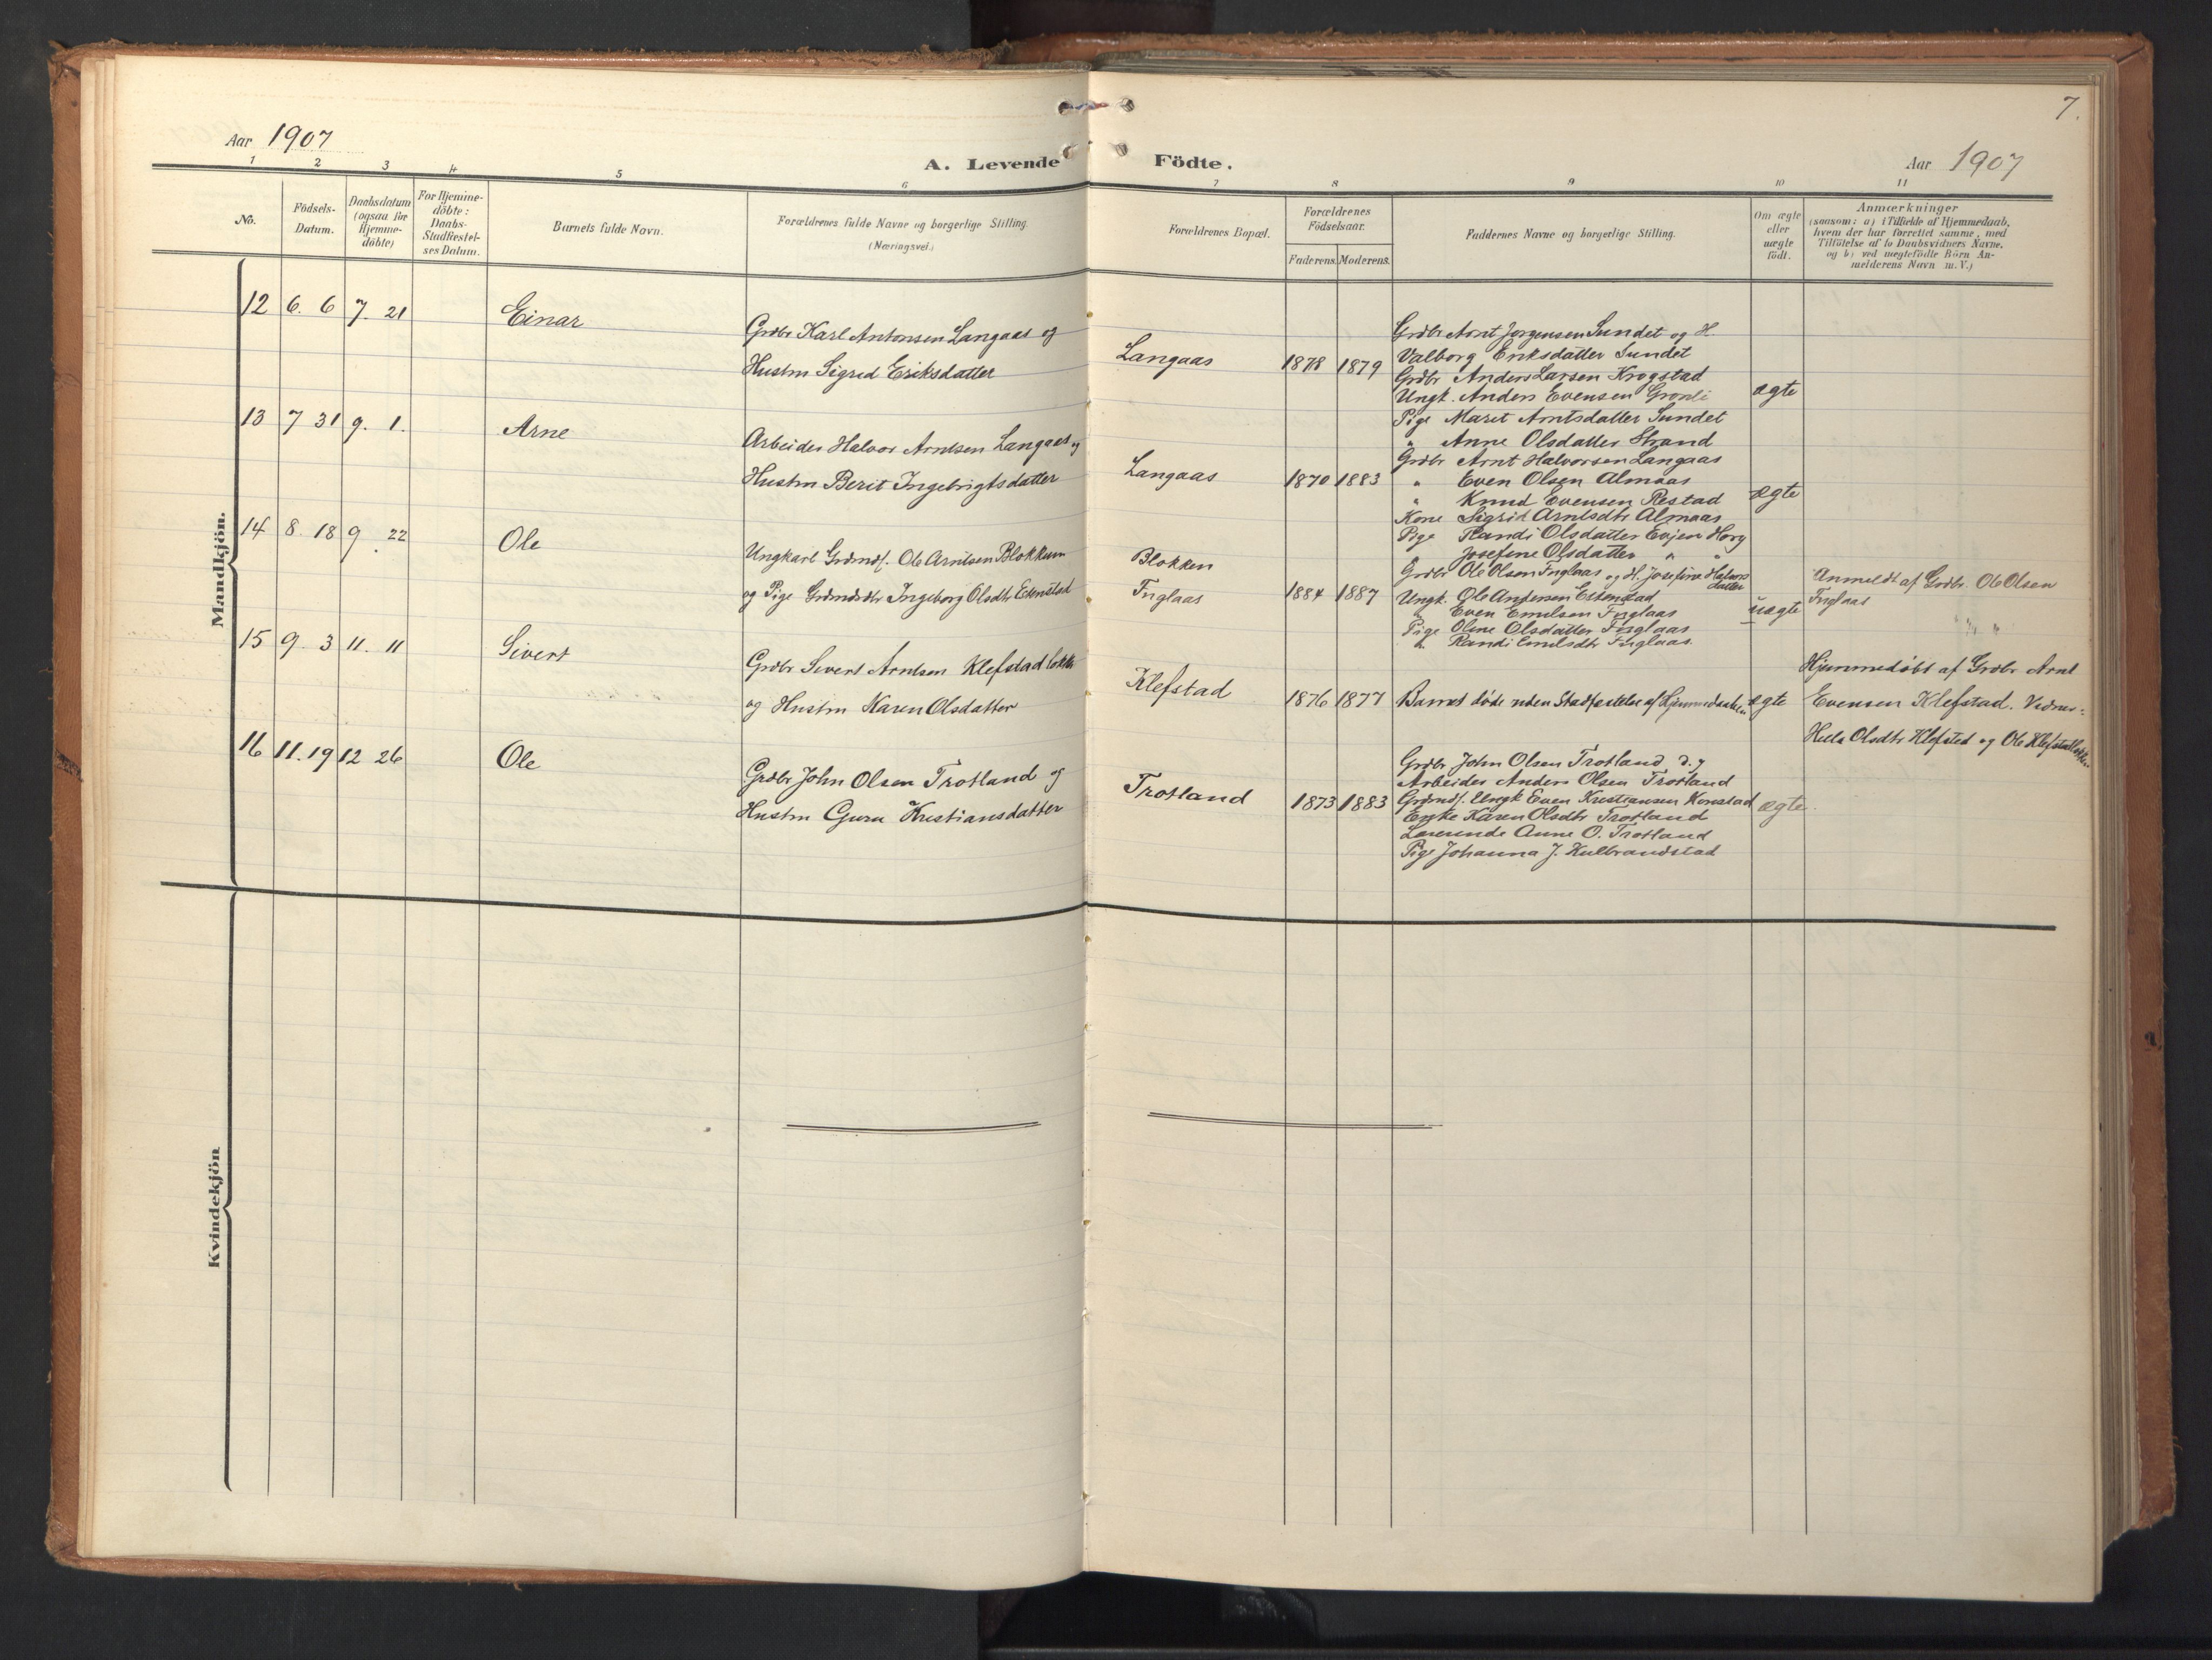 7.
Aar 1907
A. Levende Födte.
Aar 1907
1 2 3 4 5 6 7 8 9 10 11
No.
Födsels-
Datum.
Daabsdatum
(ogsaa for
Hjemme-
döbte)
For Hjemme-
döbte:
Daabs-
Stadfestel-
ses Datum.
Barnets fulde Navn.
Forældrenes fulde Navne og borgerlige Stilling.
(Næringsvei.)
Forældrenes Bopæl.
Forældrenes
Födselsaar.
Faderens. Moderens.
Faddernes Navne og borgerlige Stilling.
Om ægte
eller
uægte
födt.
Anmærkninger
(saasom: a) i Tilfælde af Hjemmedaab,
hvem der har forrettet samme, med
Tilföielse af to Daabsvidners Navne,
og b) ved uægtefödte Börn An-
melderens Navn m. V.)
Mandkjön.
12 6. 6 7. 21 Einar
Grdbr Karl Antonsen Langaas og
Hustru Sigrid Eriksdatter
Langaas 1878 1879
Grdbr Arnt Jorgensen Sundet og H.
Valborg Eriksdatter Sundet
Grdbr Anders Larsen Krogstad
Ungk. Anders Evensen Gronli
Pige Marit Arntsdatter Sundet
" Anne Olsdatter Strand
ægte
13 7 31 9. 1. Arne
Arbeider Halvor Arntsen Langaas og
Hustru Berit Ingebrigtsdatter
Langaas 1870 1883
Grdbr Arnt Halvorsen Langaas
" Even Olsen Almaas
" Knud Evensen Restad
Kone Sigrid Arntsdtr Almaas
Pige Randi Olsdatter Evjen Horg
" Josefine Olsdatter " "
ægte
14 8. 18 9. 22 Ole
Ungkarl Grdmds. Ole Arntsen Blokkum
og Pige Grdmdsdtr Ingeborg Olsdtr Estenstad
Blokken
Fuglaas
1884 1887
Grdbr Ole Olsen Fuglaas og H. Josefine Halvors
datter
Ungk. Ole Andersen Estenstad
" Even Emilsen Fuglaas
Pige Oline Olsdatter Fuglaas
" Randi Emilsdtr Fuglaas.
uægte
Anmeldt af Grdbr. Ole Olsen
Fuglaas
15 9. 3 11. 11 Sivert
Grdbr Sivert Arntsen Klefstadløkk
og Hustru Karen Olsdatter
Klefstad 1876 1877
Barnet døde uden Stadfæstelse af Hjemmedaaben
ægte
Hjemmedøbt af Grdbr Arnt
Evensen Klefstad. Vidner:
Olsdtr Klefstad og Ole Klefstadløkken
16 11. 19 12 26 Ole
Grdbr John Olsen Trotland og
Hustru Guru Kristiansdatter
Trotland 1873 1883
Grdbr John Olsen Trotland d.y
Arbeider Anders Olsen Trotland
Grdmds. Ungk Even Kristiansen Konstad
Enke Karen Olsdtr Trotland
Lærerinde Anne O. Trotland
Pige Johanna J. Hulbrandstad
ægte.
Kvindekjön